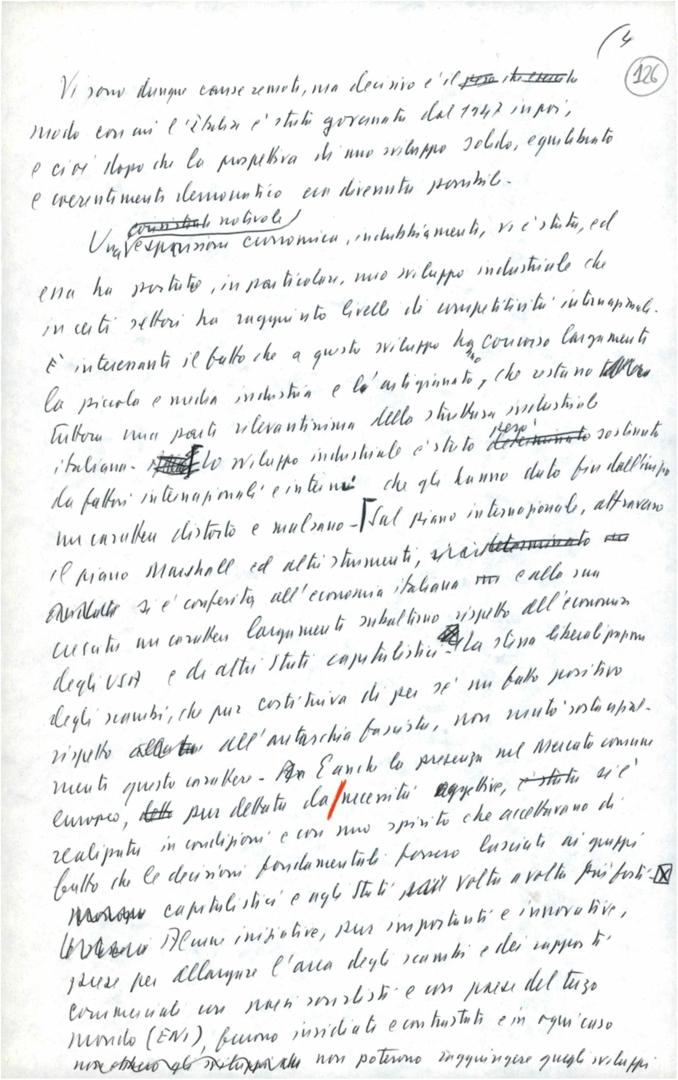 (4
126
Vi sono dunque cause remote, ma decisivo è il
modo con cui l'Italia è stata governata dal 1947 in poi,
e cioè dopo che la prospettiva di uno sviluppo solido, equilibrato
e coerentemente democratico era divenuta possibile.
consistente notevole
Una espansione economica, indubbiamente, vi è stata, ed
essa ha portato, in particolare, uno sviluppo industriale che
in certi settori ha raggiunto livelli di competitività internazionale.
È interessante il fatto che a questo sviluppo hanno concorso largamente
la piccola e media industria e l'artigianato, che restano
tuttora una parte rilevantissima della struttura industriale
però
italiana - Lo sviluppo industriale è stato determinato sostenuto
da fattori internazionali e interni che gli hanno dato fin dall'inizio
un carattere distorto e malsano - Sul piano internazionale, attraverso
il piano Marshall ed altri strumenti, determinato
si è conferito all'economia italiana e alla sua
crescita un carattere largamente subalterno rispetto all'economia
degli USA e di altri Stati capitalistici - La stessa liberalizzazione
degli scambi, che pur costituiva di per sé un fatto positivo
rispetto all'autarchia fascista, non mutò sostanzial-
mente questo carattere - E anche la presenza nel Mercato comune
europeo, pur dettata da necessità oggettive, è stata si è
realizzata in condizioni e con uno spirito che accettavano di
fatto che le decisioni fondamentali fossero lasciate ai gruppi
capitalistici e agli Stati volta a volta più forti -
Alcune iniziative, pur importanti e innovative,
prese per allargare l'area degli scambi e dei rapporti
commerciali con paesi socialisti e con paesi del terzo
mondo (ENI), furono insidiate e contrastate e in ogni caso
non poterono raggiungere quegli sviluppi